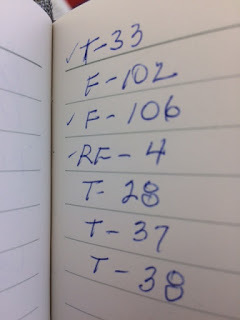 ✓ T-33
F-102
✓ F-106
✓ RF-4
T-28
T-37
T-38